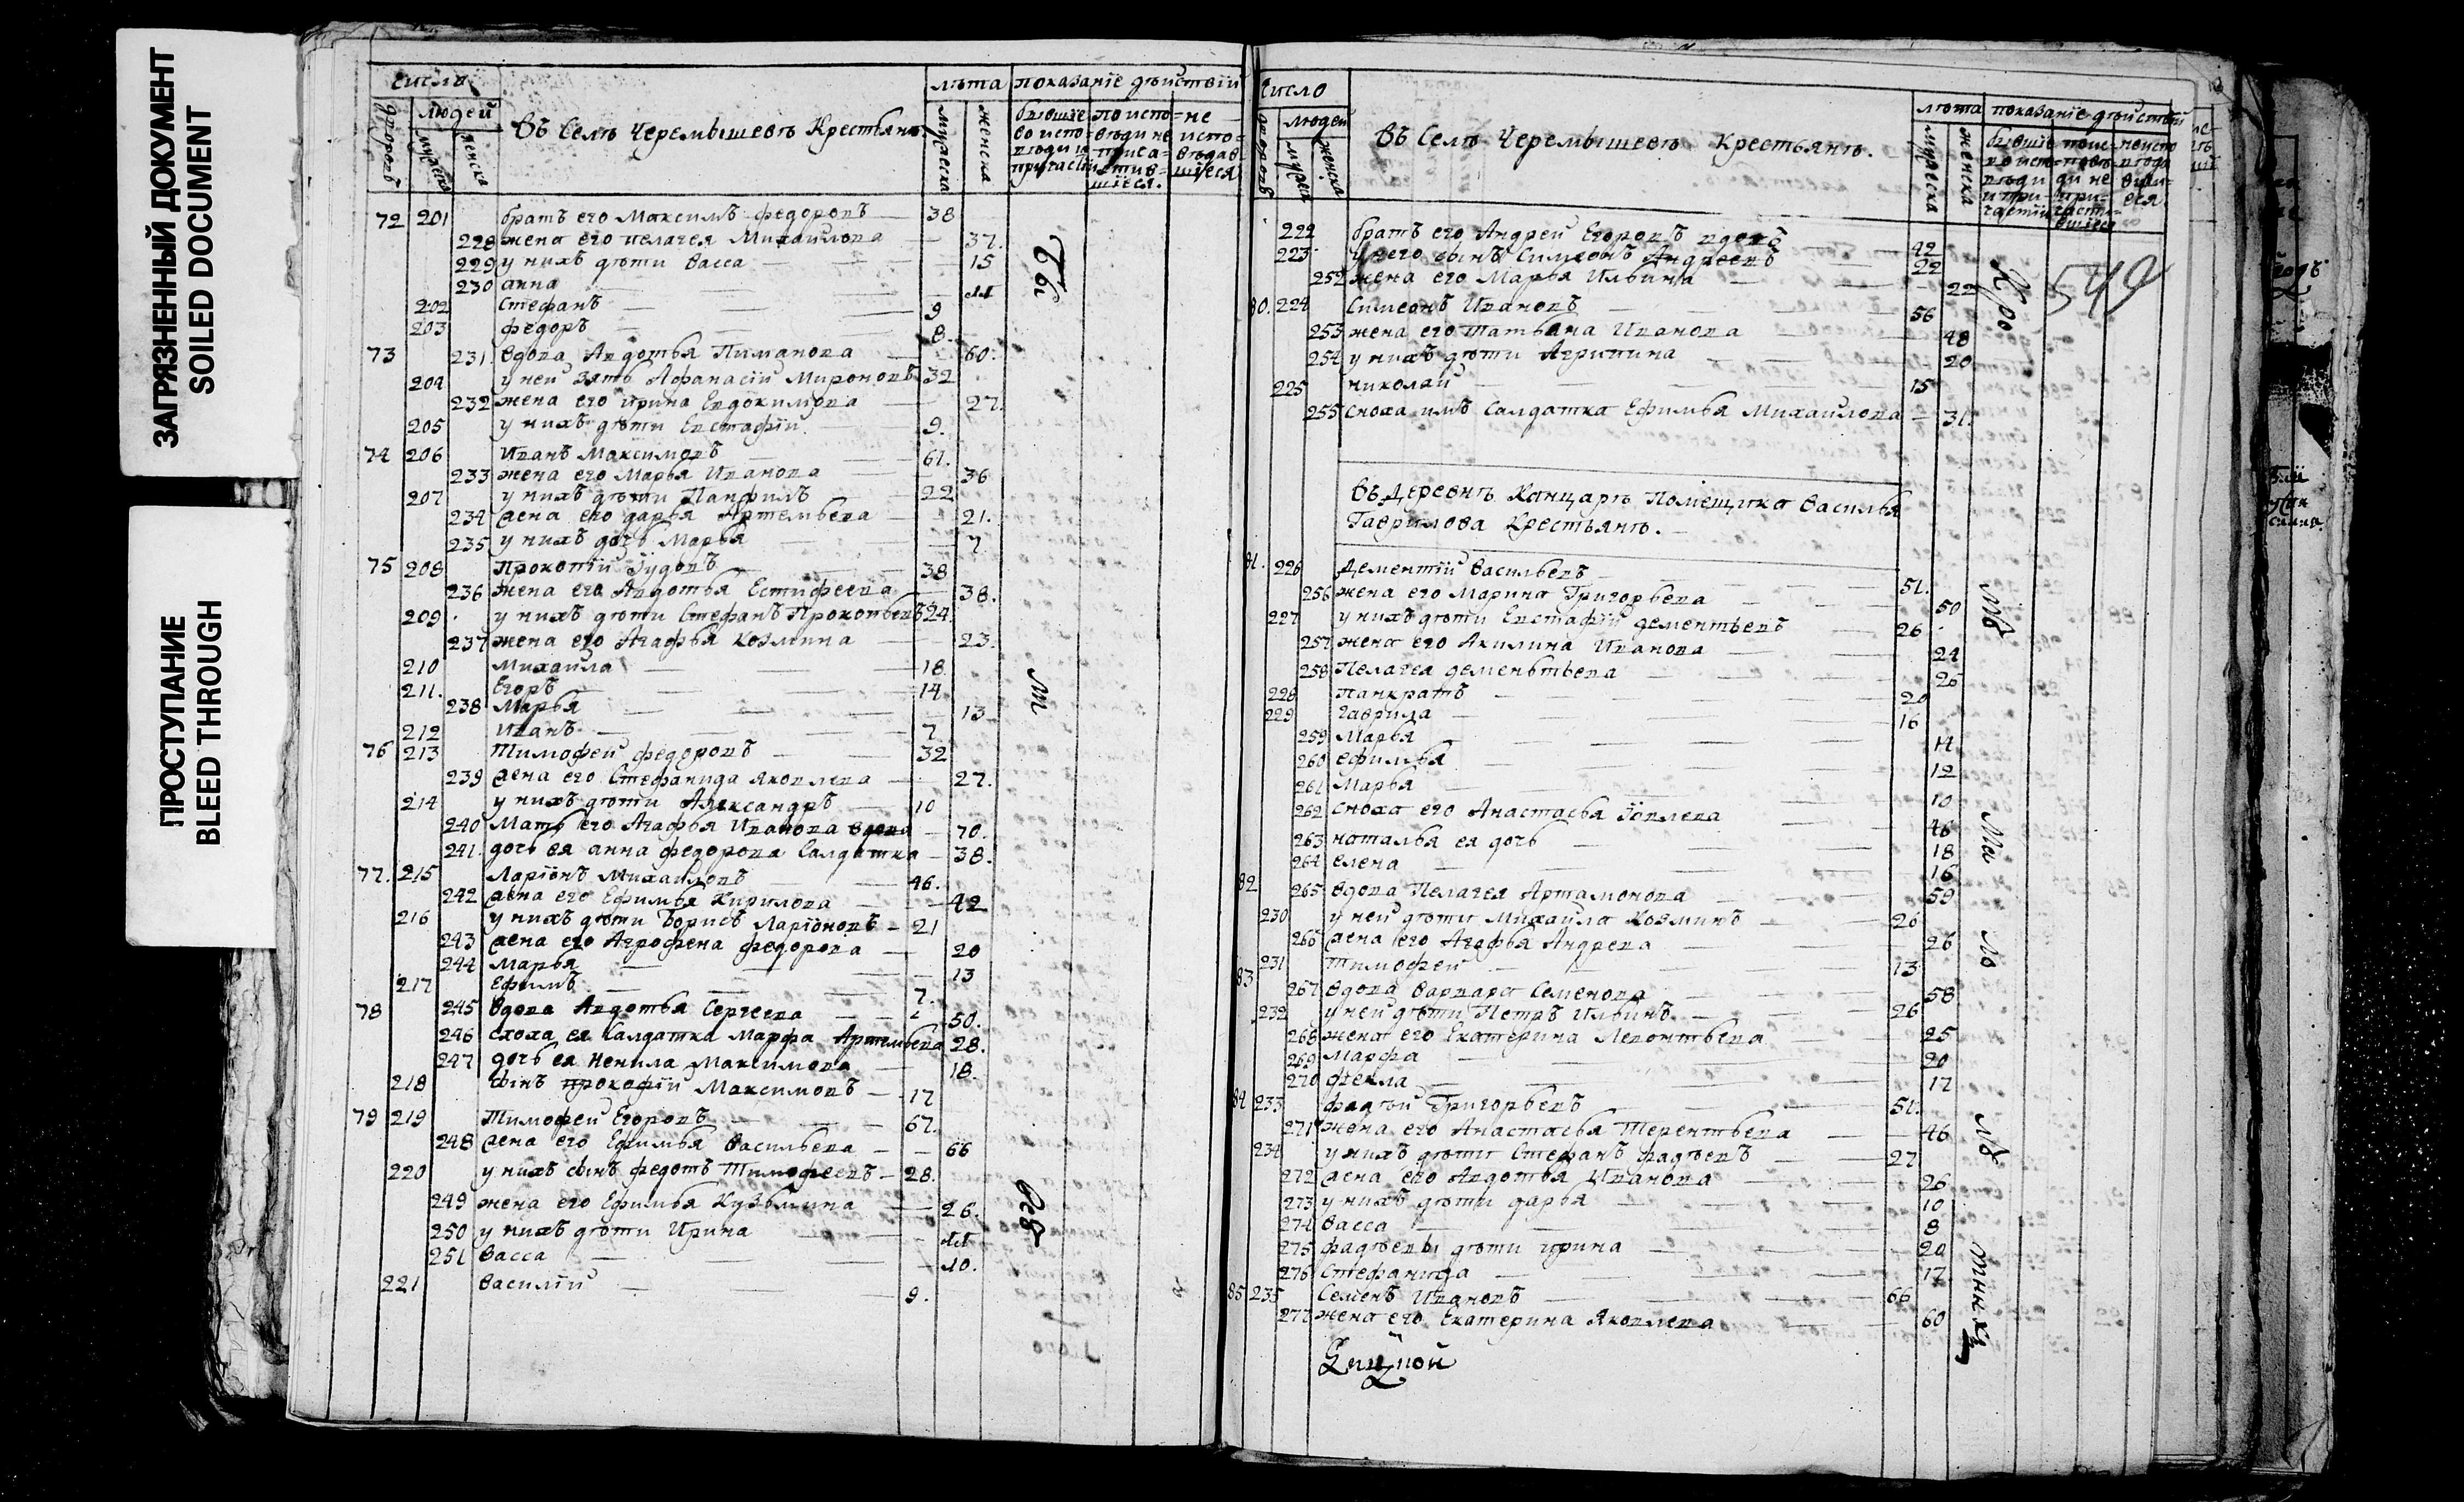 ЗАГРЯЗНЕННЫЙ ДОКУМЕНТ
SOILED DOCUMENT
ПРОСТУПАНИЕ
BLEED THROUGH
число
людей
дворовъ
мужеска
женска
Въ Селѣ Черемышевѣ Крестьянъ
лѣта
мужеска
женска
показанїе дѣйствїи
бывшїе во исповѣди и причастїи
по исповѣди не причастившїеся.
не исповѣдавшїеся
72 201 братъ его Максимъ федоровъ 38
228 жена его пелагея Михаилова 37.
229 у нихъ дѣти Васса 15
230 анна 11
202 Стефанъ 9
203 федоръ 8.
73 231 Вдова Авдотья Пиманова 60.
204 у ней зять Афанасїй Мироновъ 32
232 жена его ирина Евдокимова 27.
205 у нихъ дѣти Евстафїи 9.
74 206 Иванъ Максимовъ 61.
233 жена его Марья Иванова 36
207 у нихъ дѣти Панфилъ 22
234 жена его дарья Артемьева 21.
235 у нихъ дочь Марья 7
75 208 Прокопїи Іудовъ 38
236 жена его Авдотья Естифеева 38.
209 у нихъ дѣти Стефанъ Прокопьевъ 24.
237 жена его Агафья Козмина 23.
210 михаила 18
211. Егоръ 14
238 Марья 13
212 Иванъ 7
76 213 Тимофеи федоровъ 32
239 жена его Стефанида яковлева 27.
214 у нихъ дѣти Александръ 10
240 Мать его Агафья Иванова вдова 70.
241. дочь ея анна федорова Салдатка 38.
77. 215 Ларїонъ Михаиловъ 46.
242 жена его Ефимья Кирилова 42
216 у нихъ дѣти Борисъ Ларїоновъ 21
243 жена его Агрофена федорова 20
244 Марья 13
217 Ефимъ 7.
78 245 Вдова Авдотья Сергеева 50.
246 сноха ея Салдатка Марфа Артемьева 28.
247 дочь ея Ненила Максимова 18.
218 сынъ прокофїи Максимовъ 17
79 219 Тимофеи Егоровъ 67.
248 жена его Ефимья Васильева 66
220 у нихъ сынъ федотъ Тимофеевъ 28.
249 жена его Ефимья Кузьмина 26.
250 у нихъ дѣти Ирина 11
251 Васса 10.
221 Василїи 9.
число
людей
дворовъ
мужеска
женска
Въ Селѣ Черемышевѣ Крестьянъ.
лѣта
мужеска
женска
показанїе дѣйствїи
549
222 братъ его Андреи Егоровъ вдовъ 42
223 у него сынъ Симеонъ Андреевъ 22
252 жена его Марья Ильина 22
80. 224 Симеонъ Ивановъ 56
253 жена его татьяна Иванова 48
254 у нихъ дѣти Агрипина 20
225 николаи 15
255 сноха имъ Салдатка Ефимья Михаилова 31.
Въ деревнѣ Канцарѣ Помещика Василья
Гаврилова Крестьянъ.
81. 226 Дементїи Васильевъ 51.
256 жена его Марина Григорьева 50
227 у нихъ дѣти Евстафїи дементьевъ 26
257 жена его Акилина Иванова 24
258 Пелагея дементьева 26
228 панкратъ 20
229 гаврила 16
259 Марья 14
260 ефимья 12
261 Марья 10
262 сноха его Анастасья Іовлева 46
263 наталья ея дочь 18
264 елена 16
82 265 Вдова Пелагея Артамонова 59
230 у ней дѣти Михаила Козминъ 26
266 жена его Агафья Андреева 26
231 тимофеи 13
83 267 Вдова Варвара Семенова 58
232 у ней дѣти Петръ Ильинъ 26
268 жена его Екатерина Левонтьева 25
269 марфа 20
270 фекла 17
84 233 фадѣи Григорьевъ 51.
271 жена его Анастасья Терентьева 46
234 у нихъ дѣти Стефанъ фадѣевъ 27
272 жена его Авдотья Иванова 26
273 у нихъ дѣти дарья 10
274 Васса 8
275 фадѣевы дѣти ирина 20
276 Стефанида 17
85 235 Семенъ Ивановъ 66
277 жена его Екатерина Яковлева 60